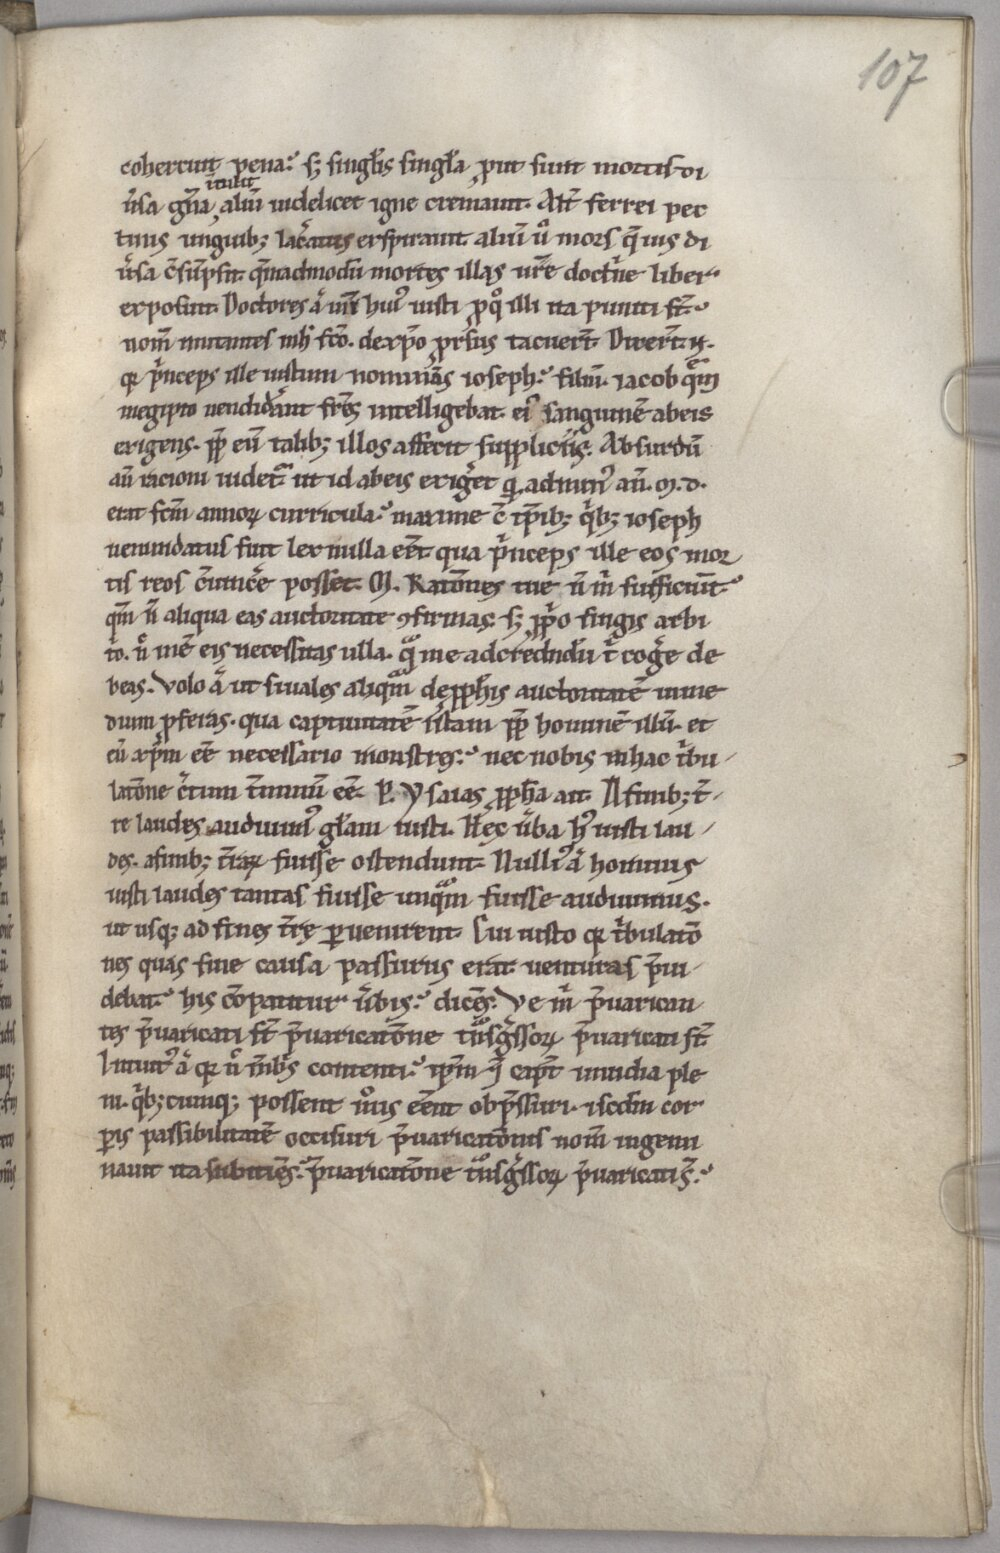 107
cohercuit pena. sꝫ singl̄is singl̄a ꝓut sunt mortis di
inuit
ūsa gn̄a aliū uidelicet igne cremauit. Alt̄ ferrei pec
tinis unguibꝫ lac̄atus exspirauit aliū ů mors q̄ ius di
ūsa c̄sūpsit. q̄madmodū mortes illas ur̄e doctͥne liber
exposuit. Doctores aͥ ur̄i huiꝰ iusti ꝓ qͦ illi ita puniti st̄.
nom̄ mutantes nih̾ sc̄o. de xp̄o prͦsus tacuer̄t. Dixer̄t .n.
qꝛ pͥnceps ille iustum nominās ioseph. filiū. iacob quē
in egipto uendidͣant fr̄es intelligebat. eiꝰ sanguinē ab eis
exigens. ꝓp̄ eū talibꝫ illos affecit suppliciis. Absurdū
aū racioni uidet̄ ut id ab eis exigͤet qͥ ad minꝰ an̄. M. d.
erat sc̄m annoꝝ curricula. maxime c̄ tp̄ibꝫ qͥbꝫ ioseph
uenundatus fuit lex nulla eēt qua pͥnceps ille eos mor
tis reos c̄uincͤe posset. M. Ratōnes tue n̄ mͥ sufficiūt.
qm̄ n̄ aliqua eas auctoritate ꝯfirmas. sꝫ ꝓpͥo fingis arbi
tͥo. n̄ inē eis necessitas ulla. qͣ me ad credndū t̄ cogͤe de
beas. Volo aͥ ut si uales aliqͣm de ꝓph̄is auctoritatē in me
dium ꝓferas. qua captiuitatē istam ꝓp̄ hominē illū. et
eū xp̄m eē necessario monstres. nec nobis in hac tͥbu
latōne c̄tum t̄minū eē. P. Ysaias ꝓph̄a ait. A finibꝫ t̄
re laudes audiuimꝰ gl̄am iusti. Hec ūba hꝰ iusti lau
des. a finibꝫ t̄raꝝ fuisse ostendunt. Nulliꝰ aͥ hominis
iusti laudes tantas fuisse unqͣm fuisse audiuimus.
ut usqꝫ ad fines t̄re peruenirent. Sui iusto qꝛ tͥbulatō
nes quas sine causa passurus erat uenturas p̄ui
debat. his cōpatitur ūbis. dicēs. Ve mͥ p̄uarican
tes p̄uaricati st̄ p̄uaricatōne tͣnsgͤssoꝝ p̄uaricati st̄
Intuitꝰ aͥ qꝛ n̄ mb̄is contenti. ip̄m capt̄ inuidia ple
ni. qͥbꝫcumqꝫ possent iniͥis eēnt obp̄ssuri. ⁊ scdm cor
ꝑis passibilitatē occisuri p̄uaricatōnis nom̄ ingemi
nauit ita subitiēs. p̄uaricatōne tͣnsgͤssoꝝ p̄uaricati st̄.